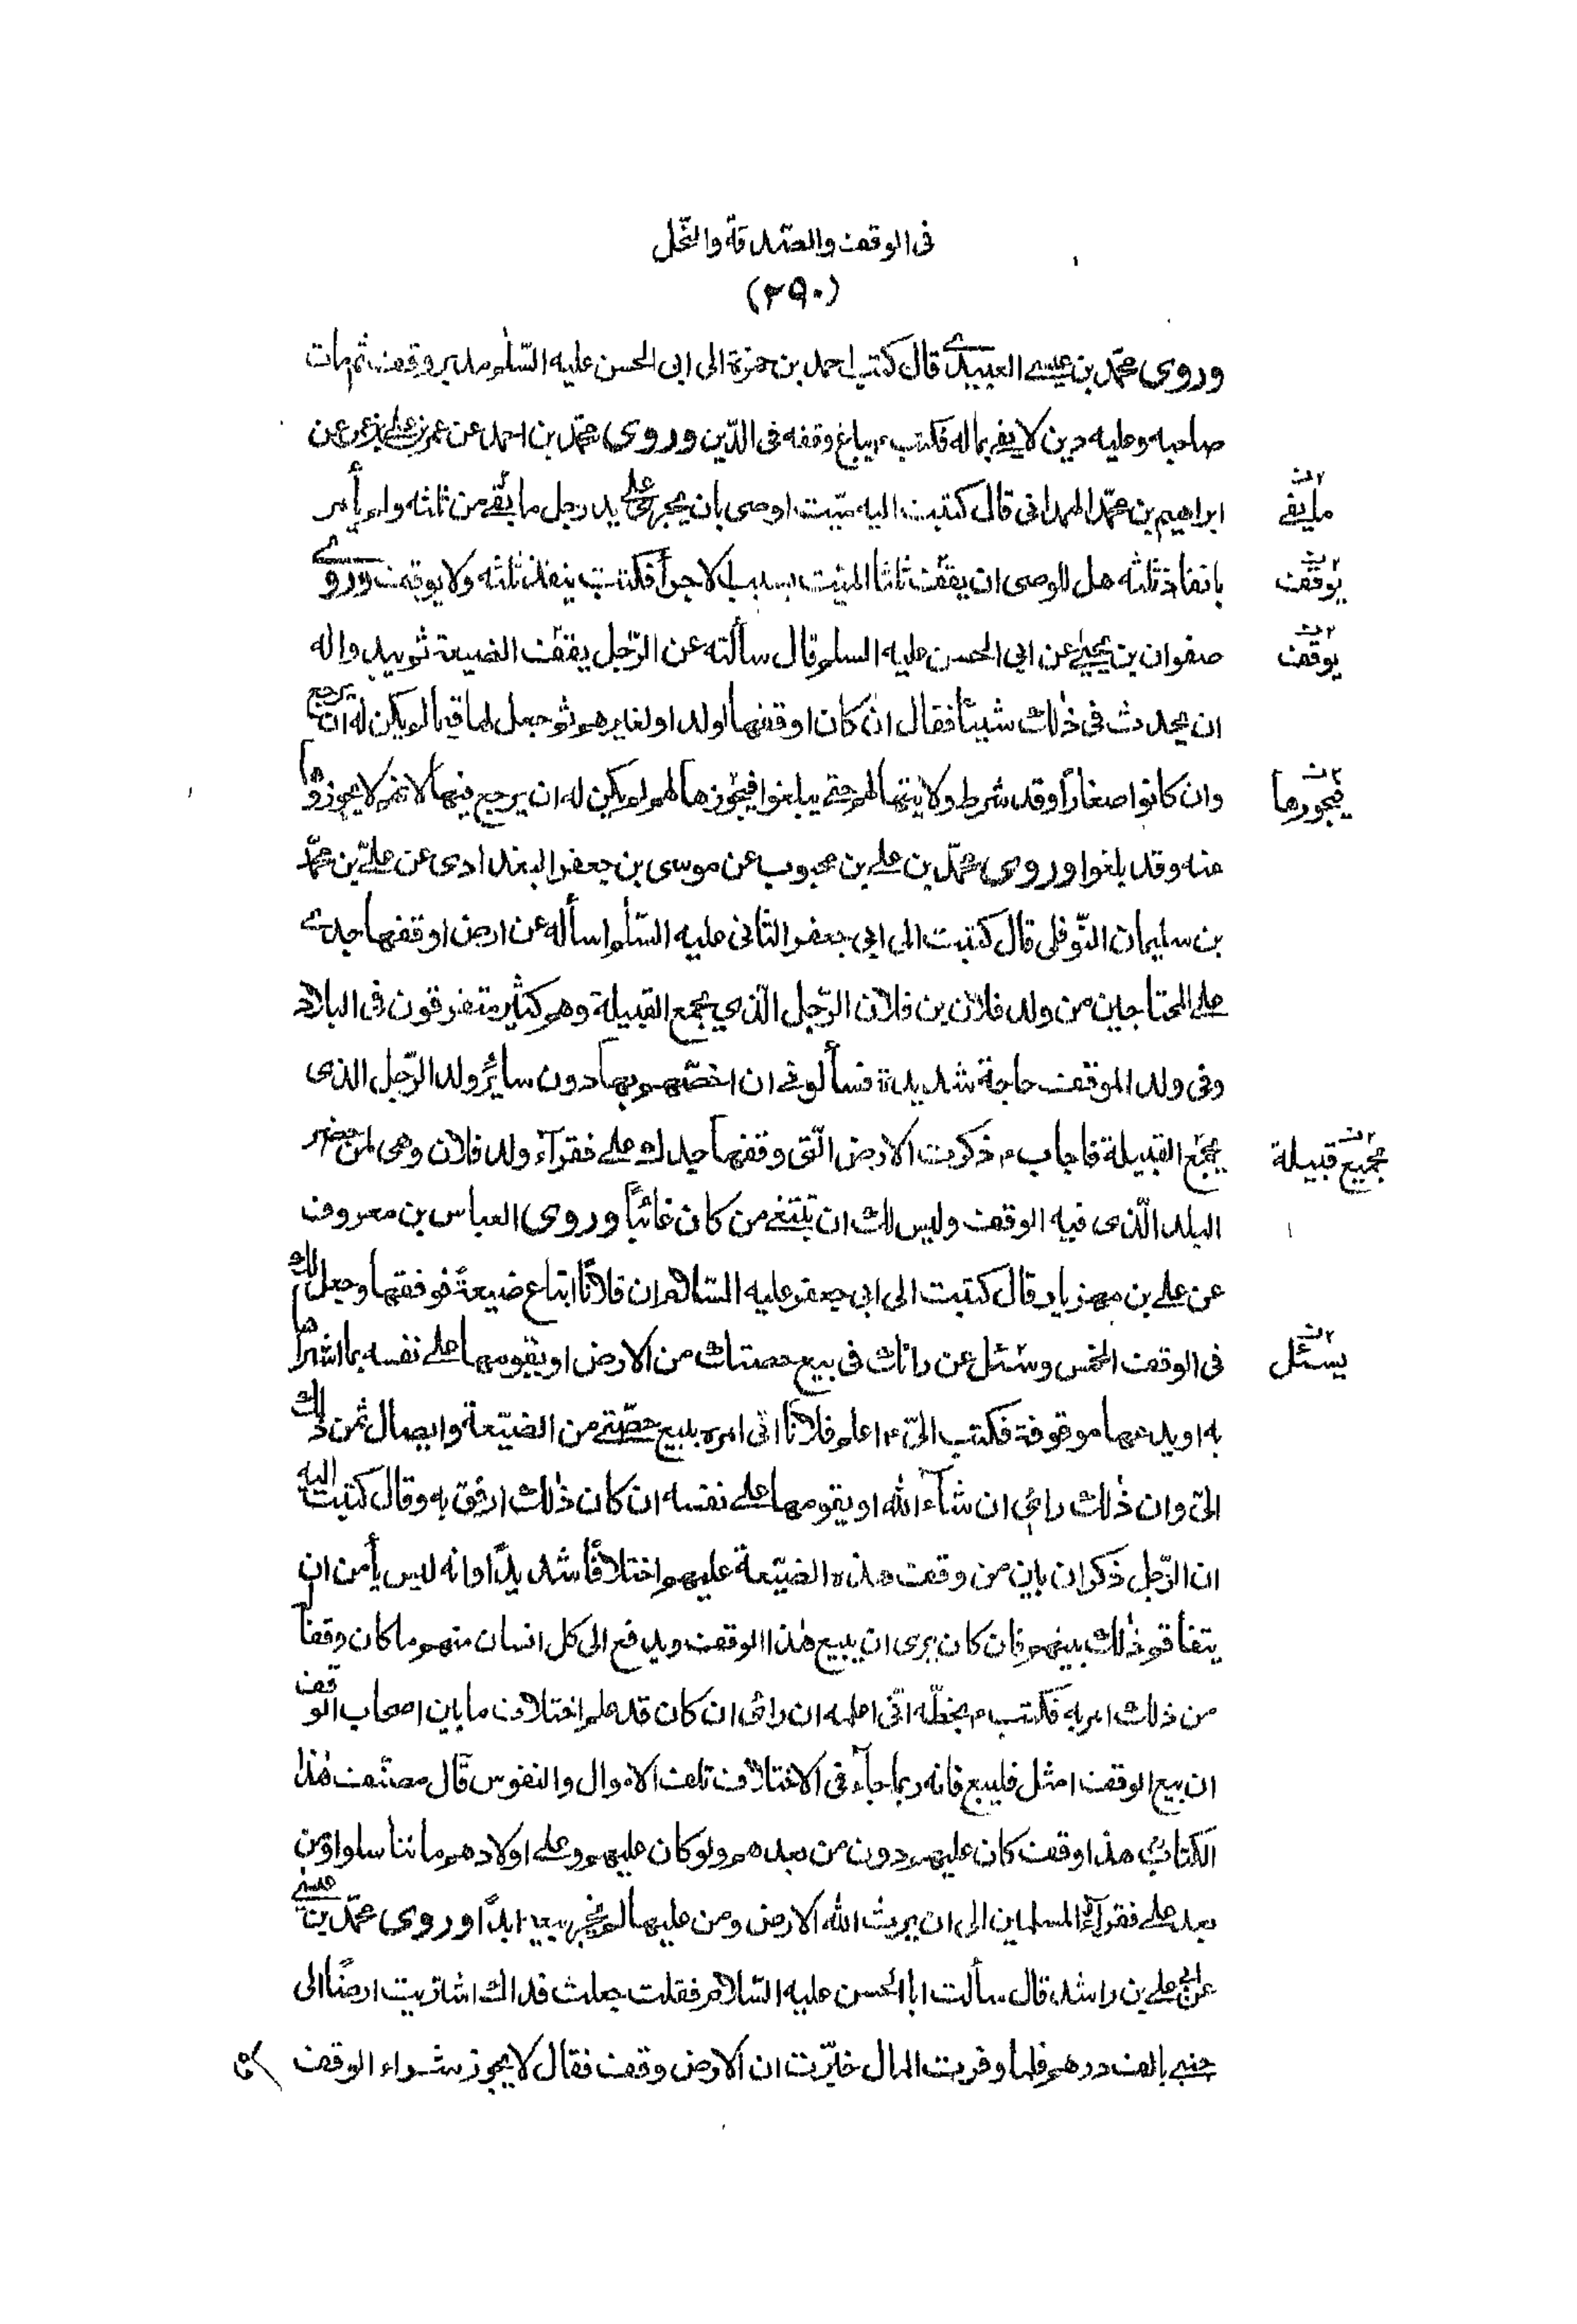 فى الوقف والصّدقة والنّحل
(٢٩٠)
وروى محمّد بن عيسى العبيدى قال كتب احمد بن حمزة الى ابى الحسن عليه السّلم مدبر وقف ثم مات
صاحبه وعليه دين لا يفى بماله فكتب ع يباع وقفه فى الدّين وروى محمّد بن احمد عن عمر بن على بن عمر عن
ابراهيم بن محمّد الهمدانى قال كتبت اليه ميّت اوصى بان يجرى على يد رجل ما بقى من ثلثه ولم يأمر
ما يبقى
بانفاذ ثلثه هل للوصى ان يقف ثلث الميّت بسبب الاجراء فكتب ينفذ ثلثه ولا يوقف وروى
يوقف
صفوان بن يحيى عن ابى الحسن عليه السلم قال سألته عن الرّجل يقف الضيعة ثم يبدو له
يوقف
ان يحدث فى ذلك شيئا فقال ان كان اوقفها لولده او لغيرهم ثم جعل لها قيما لم يكن له ان يرجع
وان كانوا صغاراً وقد شرط ولايتها لهم حتى يبلغوا فيحوزها لهم لم يكن له ان يرجع فيها لانهم لا يحوزونها
فيحوزها
عنه وقد بلغوا وروى محمّد بن على بن محبوب عن موسى بن جعفر البغدادى عن علىّ بن محمّد
بن سليمان النّوفلى قال كتبت الى ابى جعفر الثانى عليه السّلم اسأله عن ارض اوقفها جدى
على المحتاجين من ولد فلان بن فلان الرّجل الّذى يجمع القبيلة وهم كثير متفرقون فى البلاد
وفى ولد الموقف حاجة شديدة فسألونى ان اخصّهم بها دون سائر ولد الرّجل الذى
يجمع القبيلة فاجاب ع ذكرت الارض الّتى وقفها جدك على فقرآء ولد فلان وهى لمن حضر
بجميع قبيلة
البلد الّذى فيه الوقف وليس لك ان تبتغى من كان غائباً وروى العباس بن معروف
عن على بن مهزيار قال كتبت الى ابى جعفر عليه السّلام ان فلاناً ابتاع ضيعةً فوقفها وجعل لك
فى الوقف الخمس وسئل عن رائك فى بيع حصتك من الارض او يقومها على نفسه بما اشتراها
يسئل
به او يدعها موقوفة فكتب الىّ ع اعلم فلاناً انى امره ببيع حصّتى من الضيّعة وايصال ثمن ذلك
الىّ وان ذلك رائى ان شآء الله او يقومها على نفسه ان كان ذلك ارفق به وقال كتبت اليه
ان الرّجل ذكر ان بين من وقفت هذه الضيّعة عليهم اختلافاً شديداً وانه ليس يأمن ان
يتفاقم ذلك بينهم فان كان يرى ان يبيع هذا الوقف ويدفع الى كل انسان منهم ما كان وقف
من ذلك امر به فكتب ع بخطّه انّى اعلمه ان رائى ان كان قد علم اختلاف ما بين اصحاب الوقف
ان بيع الوقف امثل فليبع فانه ربما جآء فى الاختلاف تلف الاموال والنفوس قال مصنّف هذا
الكتاب هذا وقف كان عليهم دون من بعدهم ولو كان عليهم وعلى اولادهم ما تناسلوا ومن
بعد على فقرآء المسلمين الى ان يرث الله الارض ومن عليها لم يجز بيعه ابداً وروى محمّد بن عيسى
عن ابى على بن راشد قال سألت ابا الحسن عليه السّلام فقلت جعلت فداك اشتريت ارضاً الى
جنبى بالف درهم فلما وفرت المال خبّرت ان الارض وقف فقال لا يجوز شراء الوقف